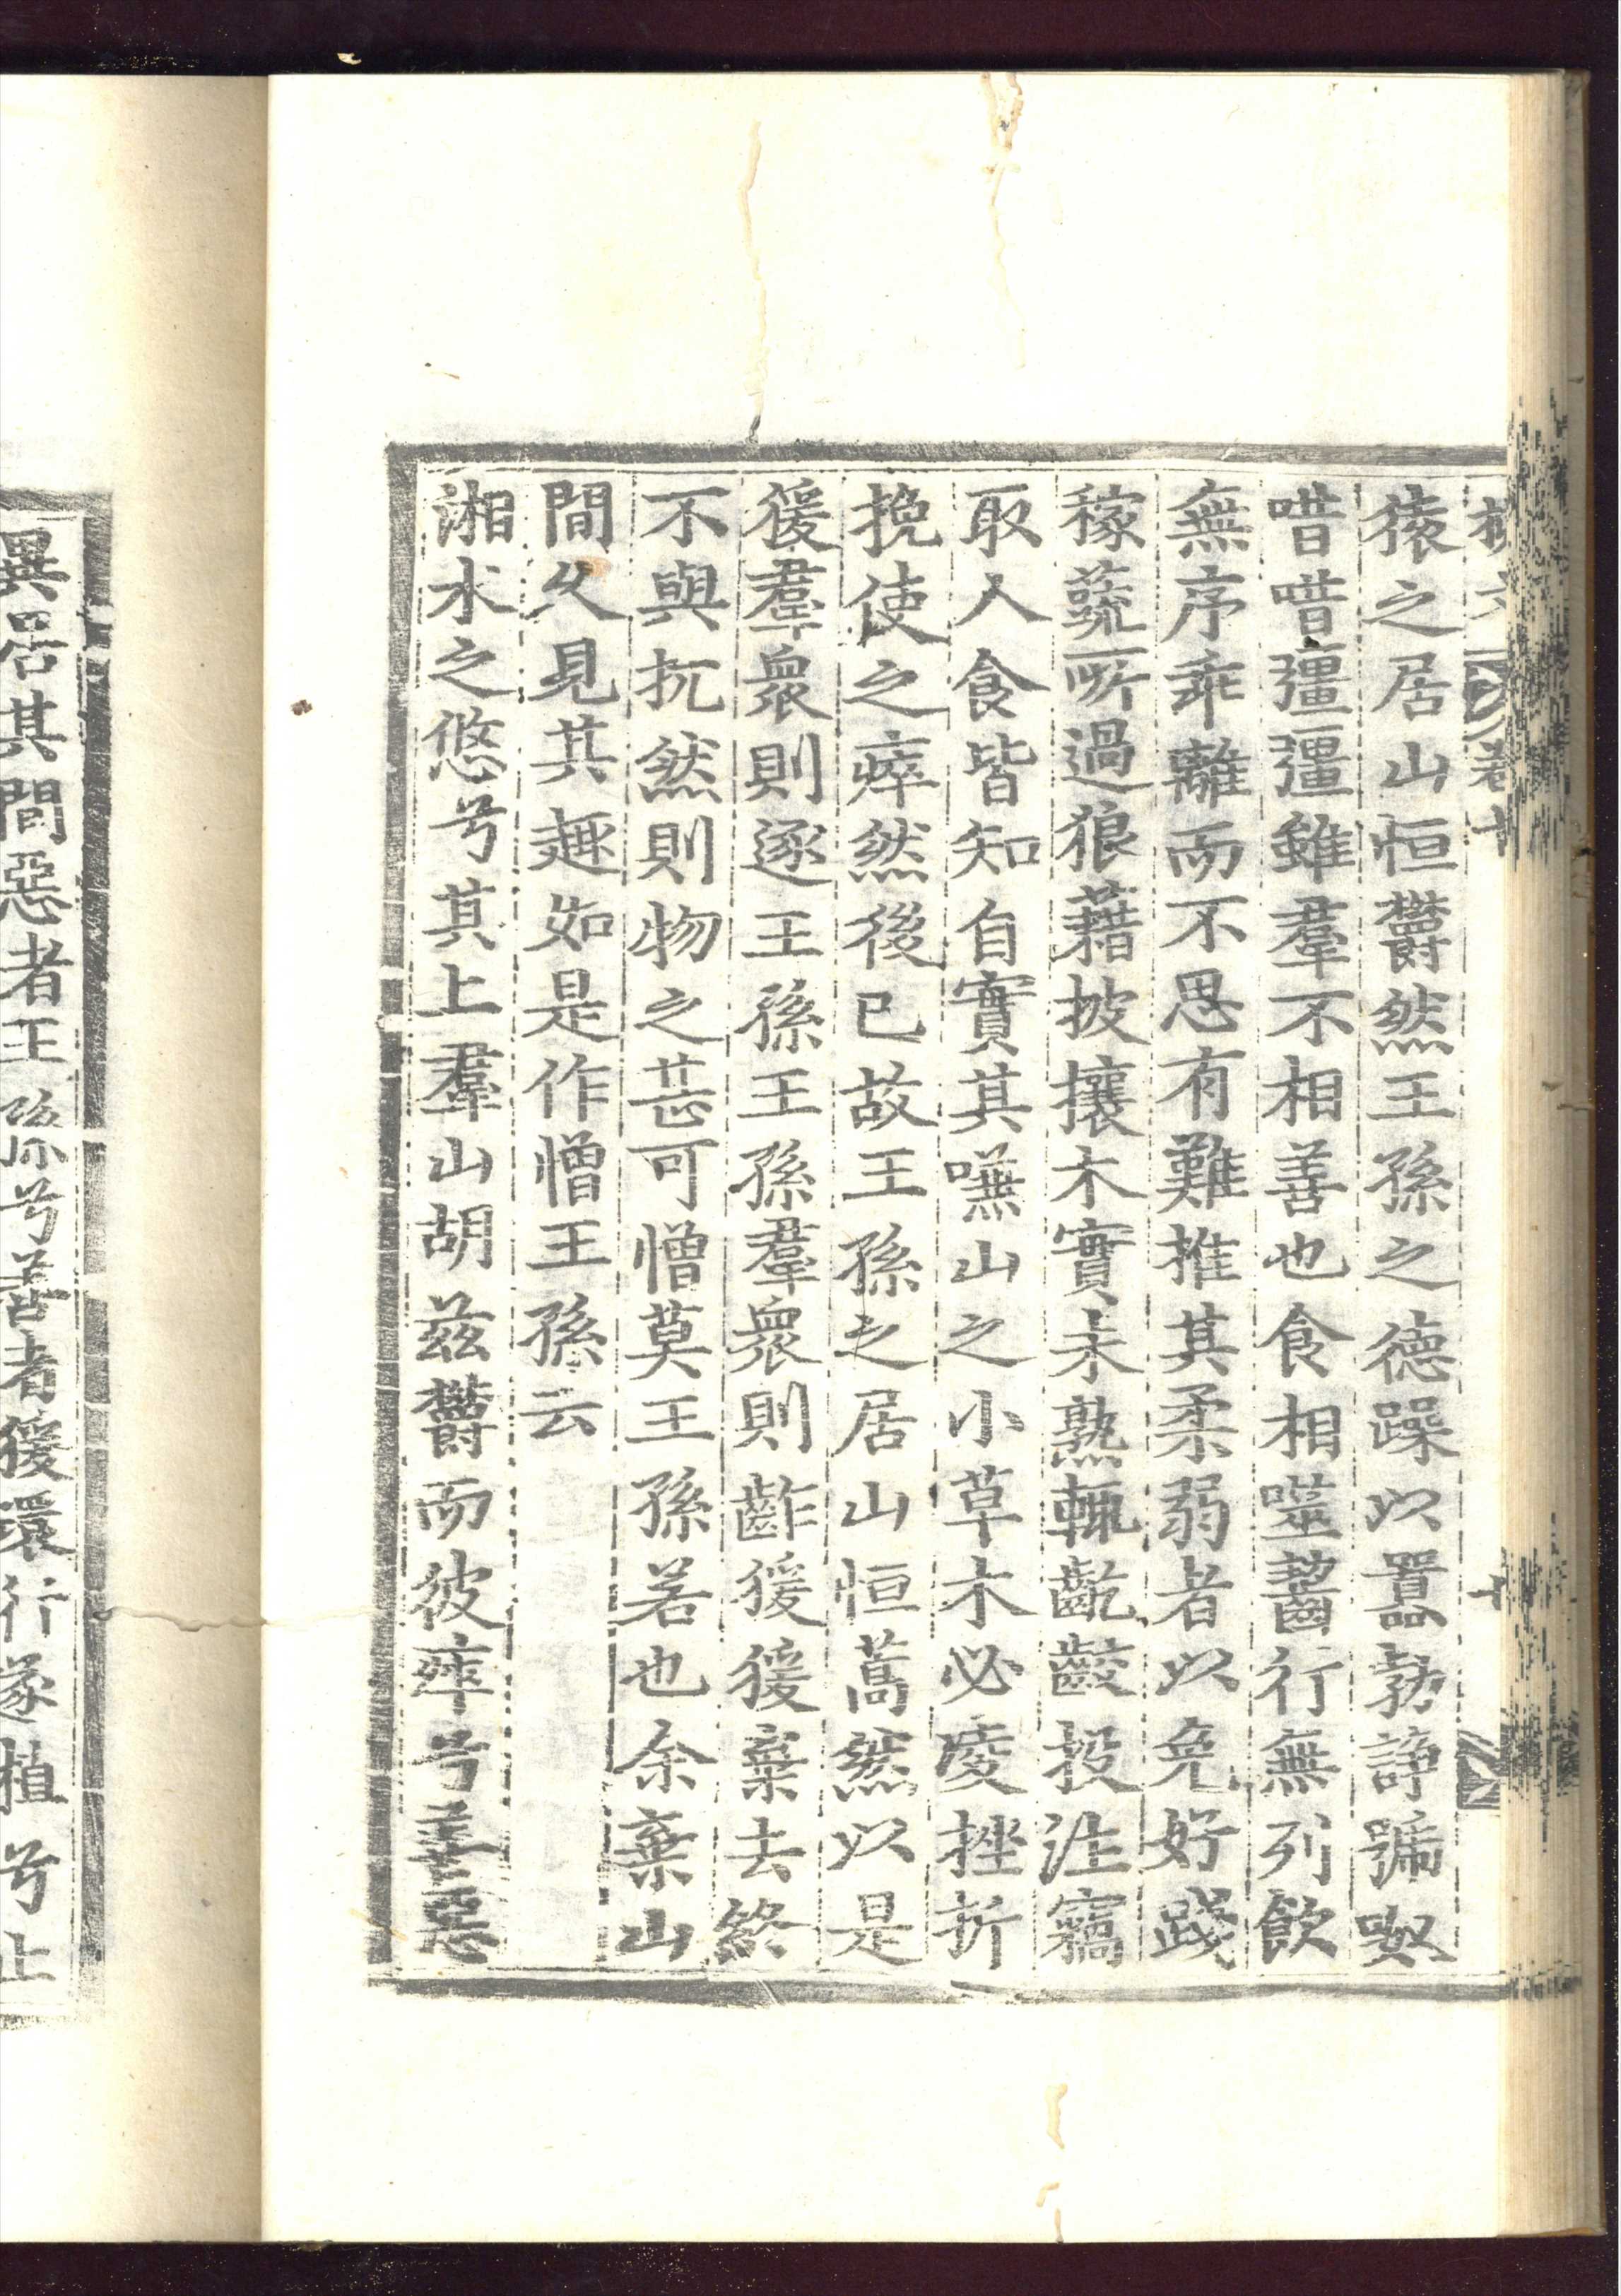 猿之居山恒欝然王孫之德躁以囂勃諍號呶
唶唶彊彊雖羣不相善也食相噬齧行無列飲
無序乖離而不思有難推其柔弱者以免好踐
稼蔬所過狼藉披攘木實未熟輒齕齩投注竊
取人食皆知自實其嗛山之小草木必凌挫折
挽使之瘁然後已故王孫之居山恒蒿然以是
猨羣衆則逐王孫王孫羣衆則齚猨猨棄去終
不與抗然則物之甚可憎莫王孫若也余棄山
間久見其趣如是作憎王孫云
湘水之悠兮其上羣山胡茲欝而彼瘁兮善惡
異居其間惡者王孫兮善者猨環行遂植兮止